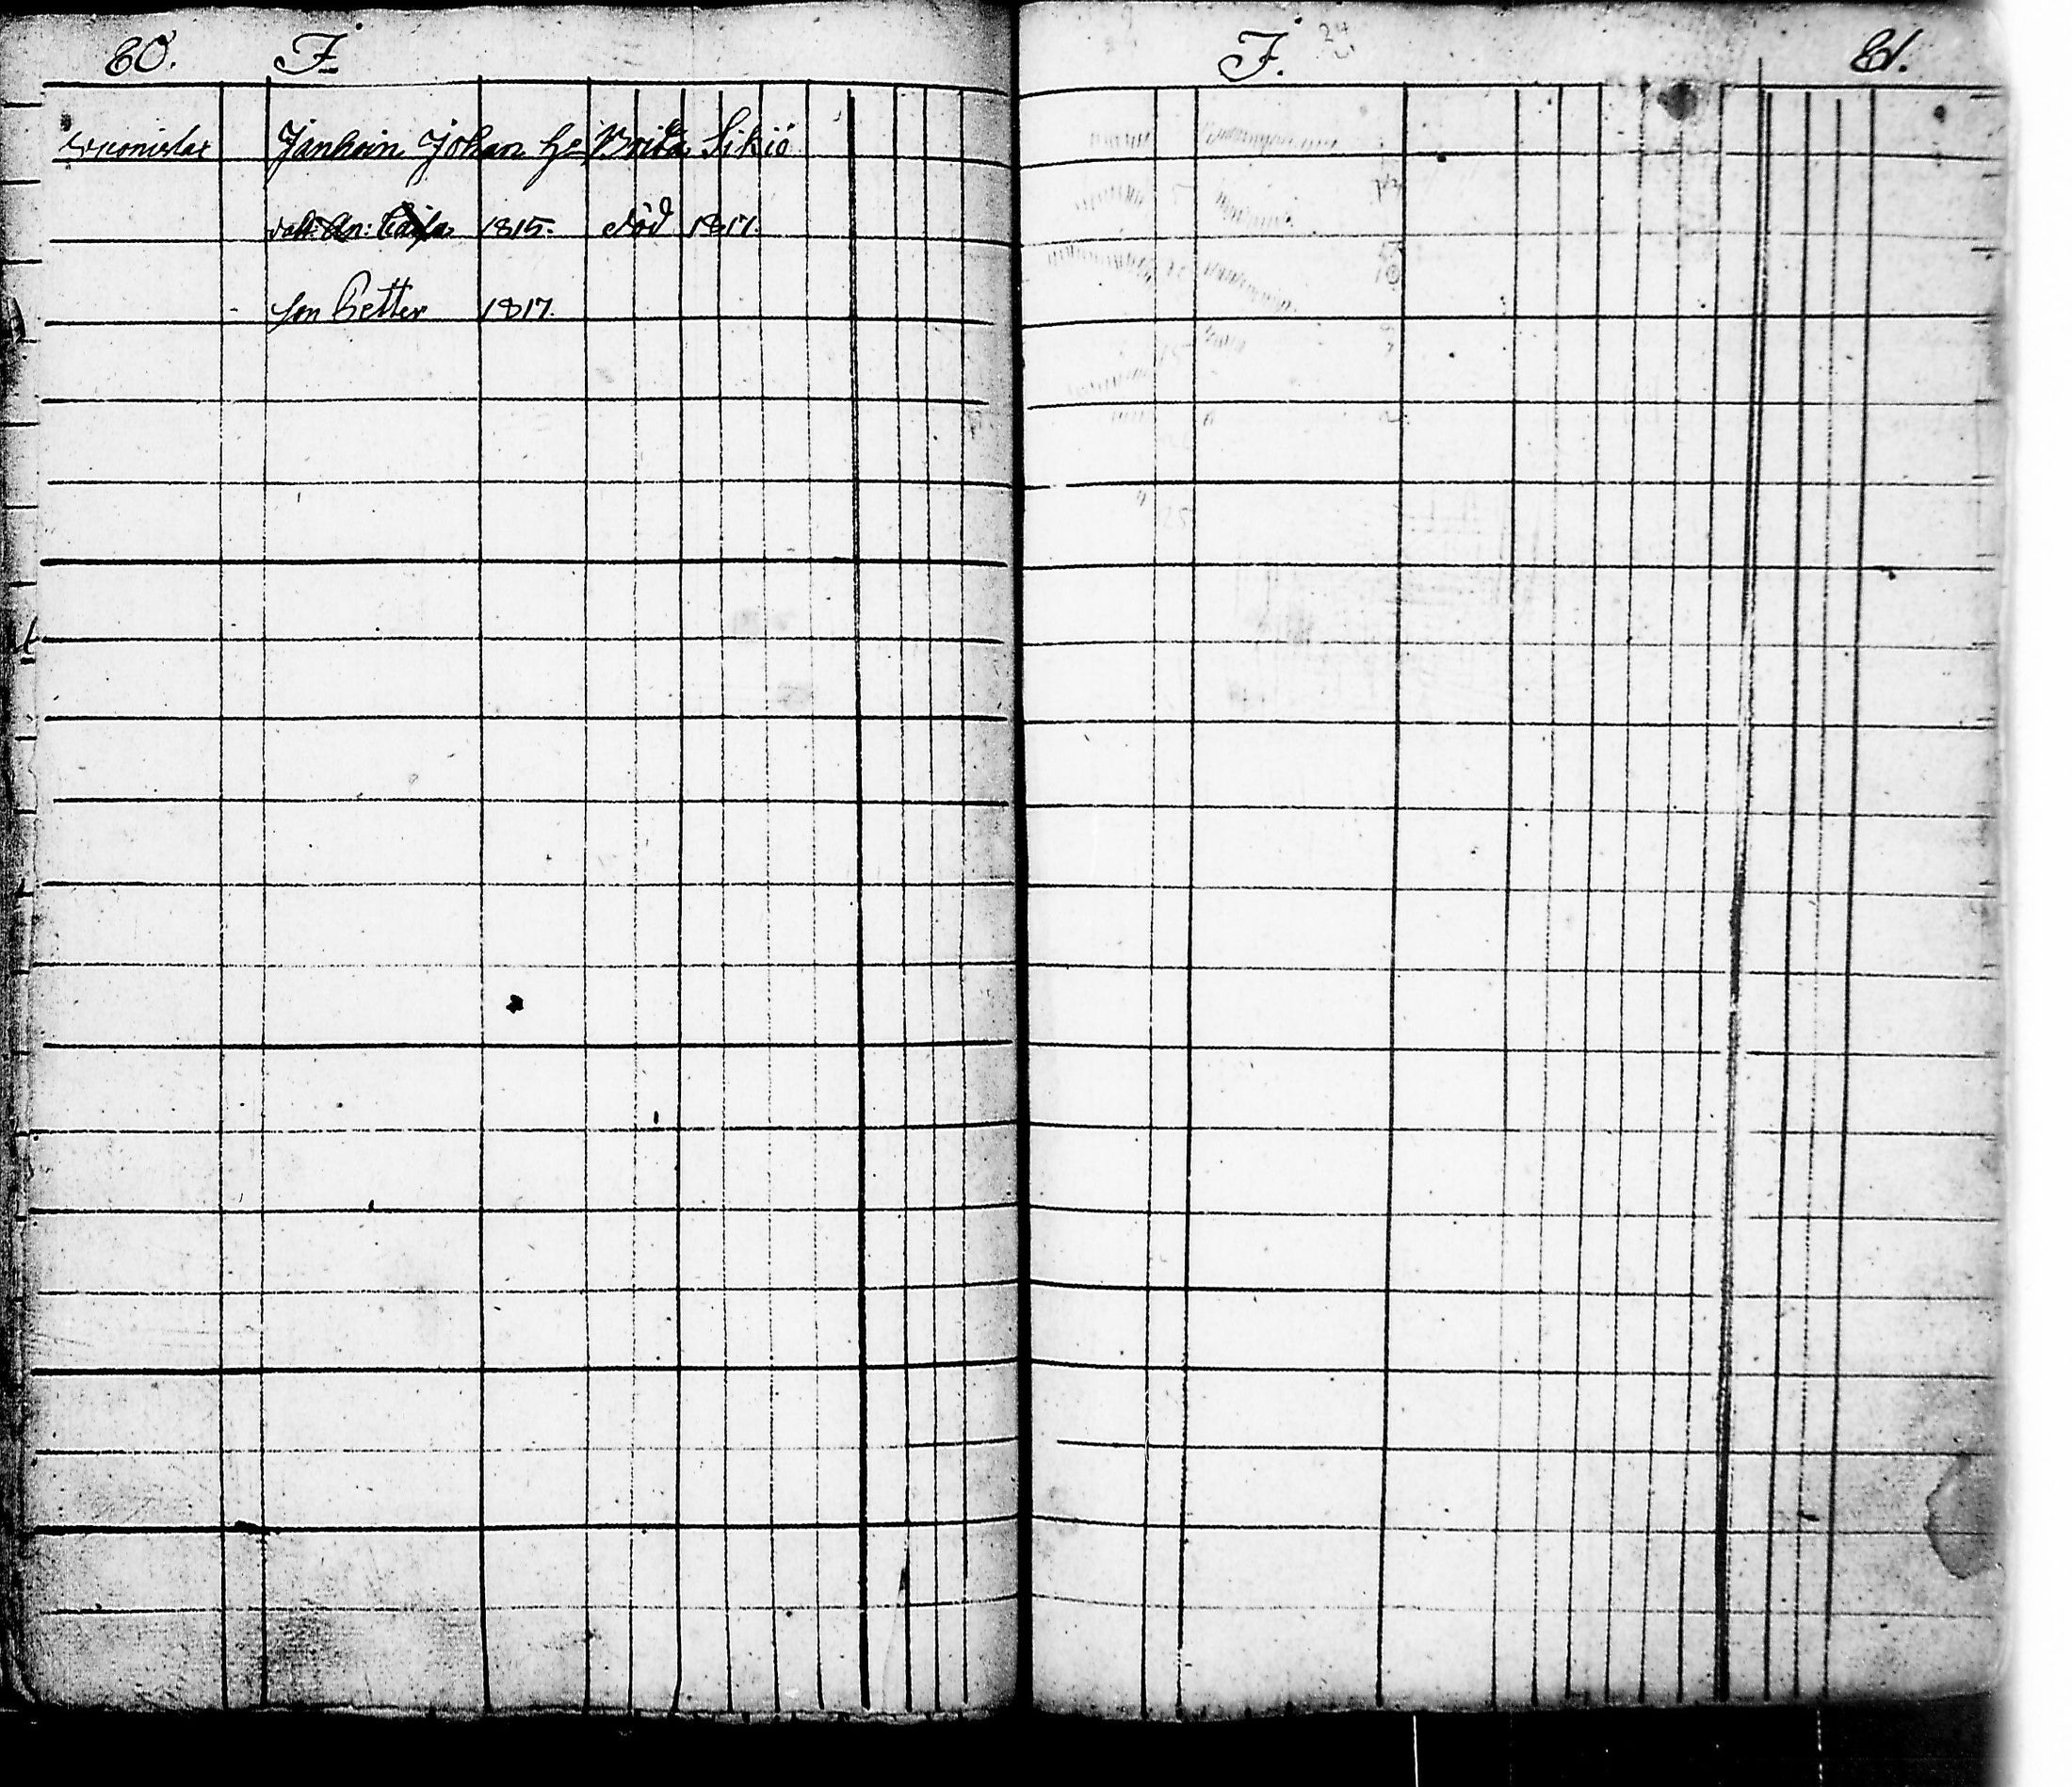 80. F.
Jankoin Johan h: Brita Sikiö
dott: An: Caisa 1815. död 1817.
son Petter 1817.
F. 81.